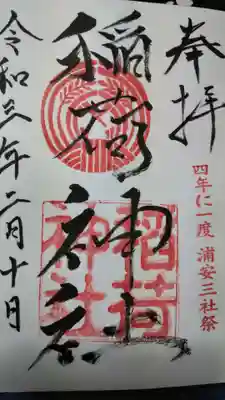 奉拝
四年に一度 浦安三社祭
稲荷神社
稲荷神社
令和三年二月十日